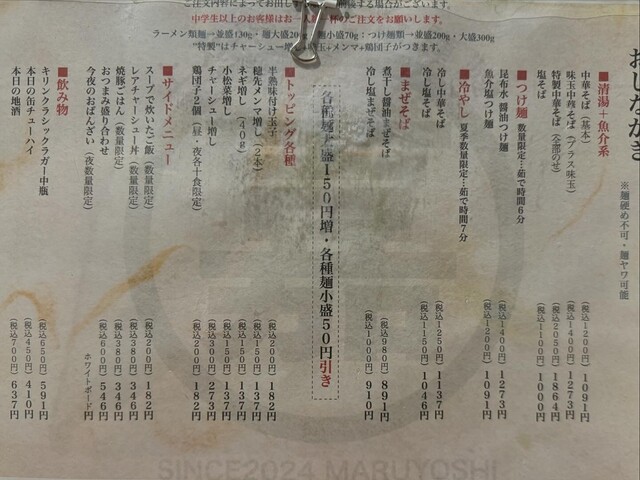 おしながき
※麺硬め不可・麺ヤワ可能
■清湯＋魚介系
中華そば（基本） （税込1200円）1091円
味玉中華そば（プラス味玉） （税込1400円）1273円
特製中華そば（全部のせ） （税込2050円）1864円
塩そば （税込1100円）1000円
■つけ麺 数量限定…茹で時間6分
昆布水 醤油つけ麺 （税込1400円）1273円
魚介塩つけ麺 （税込1200円）1091円
■冷やし 夏季数量限定…茹で時間7分
冷し中華そば （税込1250円）1137円
冷し塩そば （税込1150円）1046円
■まぜそば
煮干し醤油まぜそば （税込980円）891円
冷し塩まぜそば （税込1000円）910円
各種麺大盛150円増・各種麺小盛50円引き
■トッピング各種
半熟味付け玉子 （税込200円）182円
穂先メンマ増し（2本） （税込150円）137円
ネギ増し（40g） （税込150円）137円
小松菜増し （税込150円）137円
チャーシュー増し （税込300円）273円
鶏団子2個（昼・夜各十食限定） （税込200円）182円
■サイドメニュー
スープで炊いたご飯（数量限定） （税込200円）182円
レアチャーシュー丼（数量限定） （税込380円）346円
焼豚ごはん（数量限定） （税込380円）346円
おつまみ盛り合わせ （税込600円）546円
今夜のおばんざい（夜数量限定） ホワイトボード円
■飲み物
キリンクラシックラガー中瓶 （税込650円）591円
本日の缶チューハイ （税込450円）410円
本日の地酒 （税込700円）637円
ご注文内容によってお出しする
する場合がございます。
中学生以上のお客様はお一
杯のご注文をお願いします。
ラーメン類麺→並盛130g・麺大盛20
小盛70g：つけ麺類→並盛200g・大盛300g
"特製"はチャーシュー増し
味玉+メンマ+鶏団子がつきます。
SINCE2024 MARUYOSHI